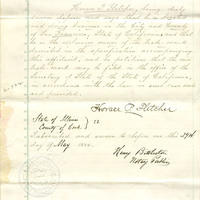 Horace P. Fletcher, being duly
sworn deposes and says that he is
and doing business in the City and County
of San Francisco, State of California, and that
he is the exclusive owner of the trade mark
described in the
this affidavit, and he petitions that the same
trade mark may be filed in the office of the
Secretary of State of the State of California,
in accordance with the law in such case made
and provided.
Horace P. Fletcher
State of
County of Cook } ss
Subscribed and sworn to before me this 29th
day of May
Henry
Notary Public